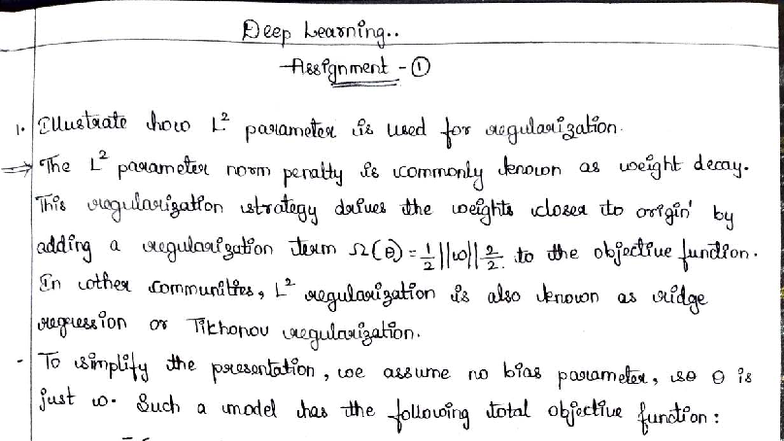 Deep Learning..
Assignment - ①
1. Illustrate how L² parameter is used for regularization.
⇒ The L² parameter norm penalty is commonly known as weight decay.
This regularization strategy drives the weights closer to origin' by
adding a regularization term Ω(θ) = 1/2 ||w|| 2/2. to the objective function.
In other communities, L² regularization is also known as ridge
regression or Tikhonov regularization.
- To simplify the presentation, we assume no bias parameter, so θ is
just w. Such a model has the following total objective function: